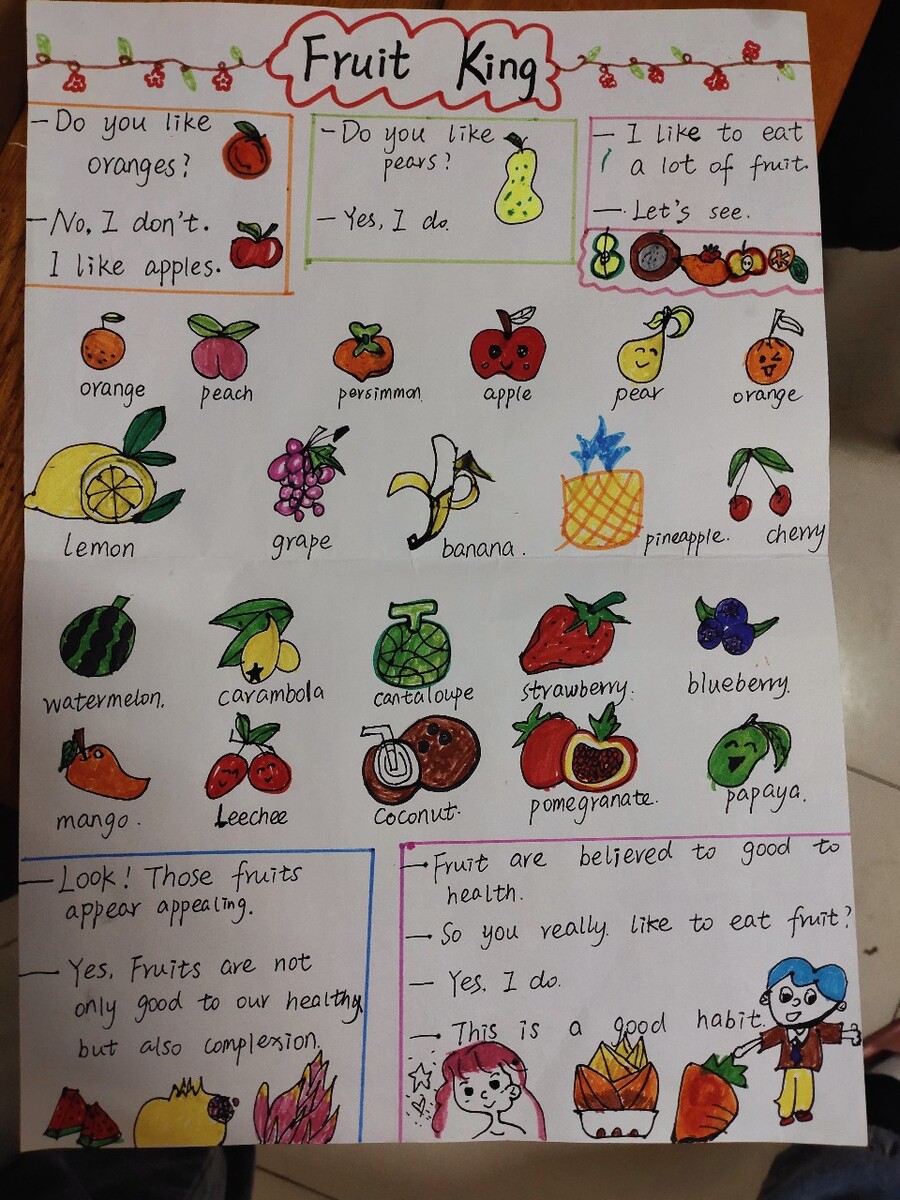 Fruit King
- Do you like
oranges?
- No, I don't.
I like apples.
- Do you like
pears?
- Yes, I do.
- I like to eat
a lot of fruit.
- Let's see.
orange peach persimmon apple pear orange
lemon grape banana. pineapple. cherry
watermelon. carambola cantaloupe strawberry. blueberry.
mango. Leechee coconut. pomegranate. papaya.
- Look! Those fruits
appear appealing.
- Yes, Fruits are not
only good to our healthy
but also complexion.
- Fruit are believed to good to
health.
- So you really. like to eat fruit?
- Yes. I do.
- This is a good habit.